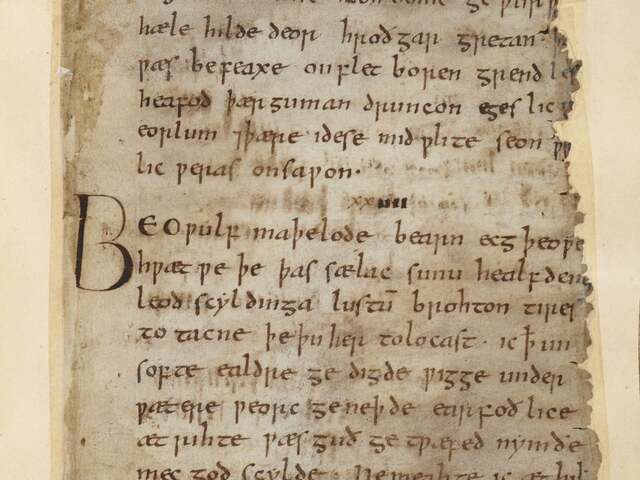 hæle hilde deor hroðgar gretan
ƿæs be feaxe on flet boren grendles
heafod þær guman druncon eges lic
eorlum ⁊ þære idese mid ƿlite seon
lic ƿeras onsaƿon·
xxiiii
BEOǷulf maþelode bearn ecg þeoƿe
hƿæt ƿe þe þas sælac sunu healfdene
leod scyldinga lustū brohton tires
to tacne þe þu her tolocast· ic ꝥ un
softe ealdre ge digde ƿigge under
ƿætere ƿeorc geneþde earfoð lice
æt rihte ƿæs guð ge tƿæfed nymðe
mec god scylde Ne meahte ic æt hil